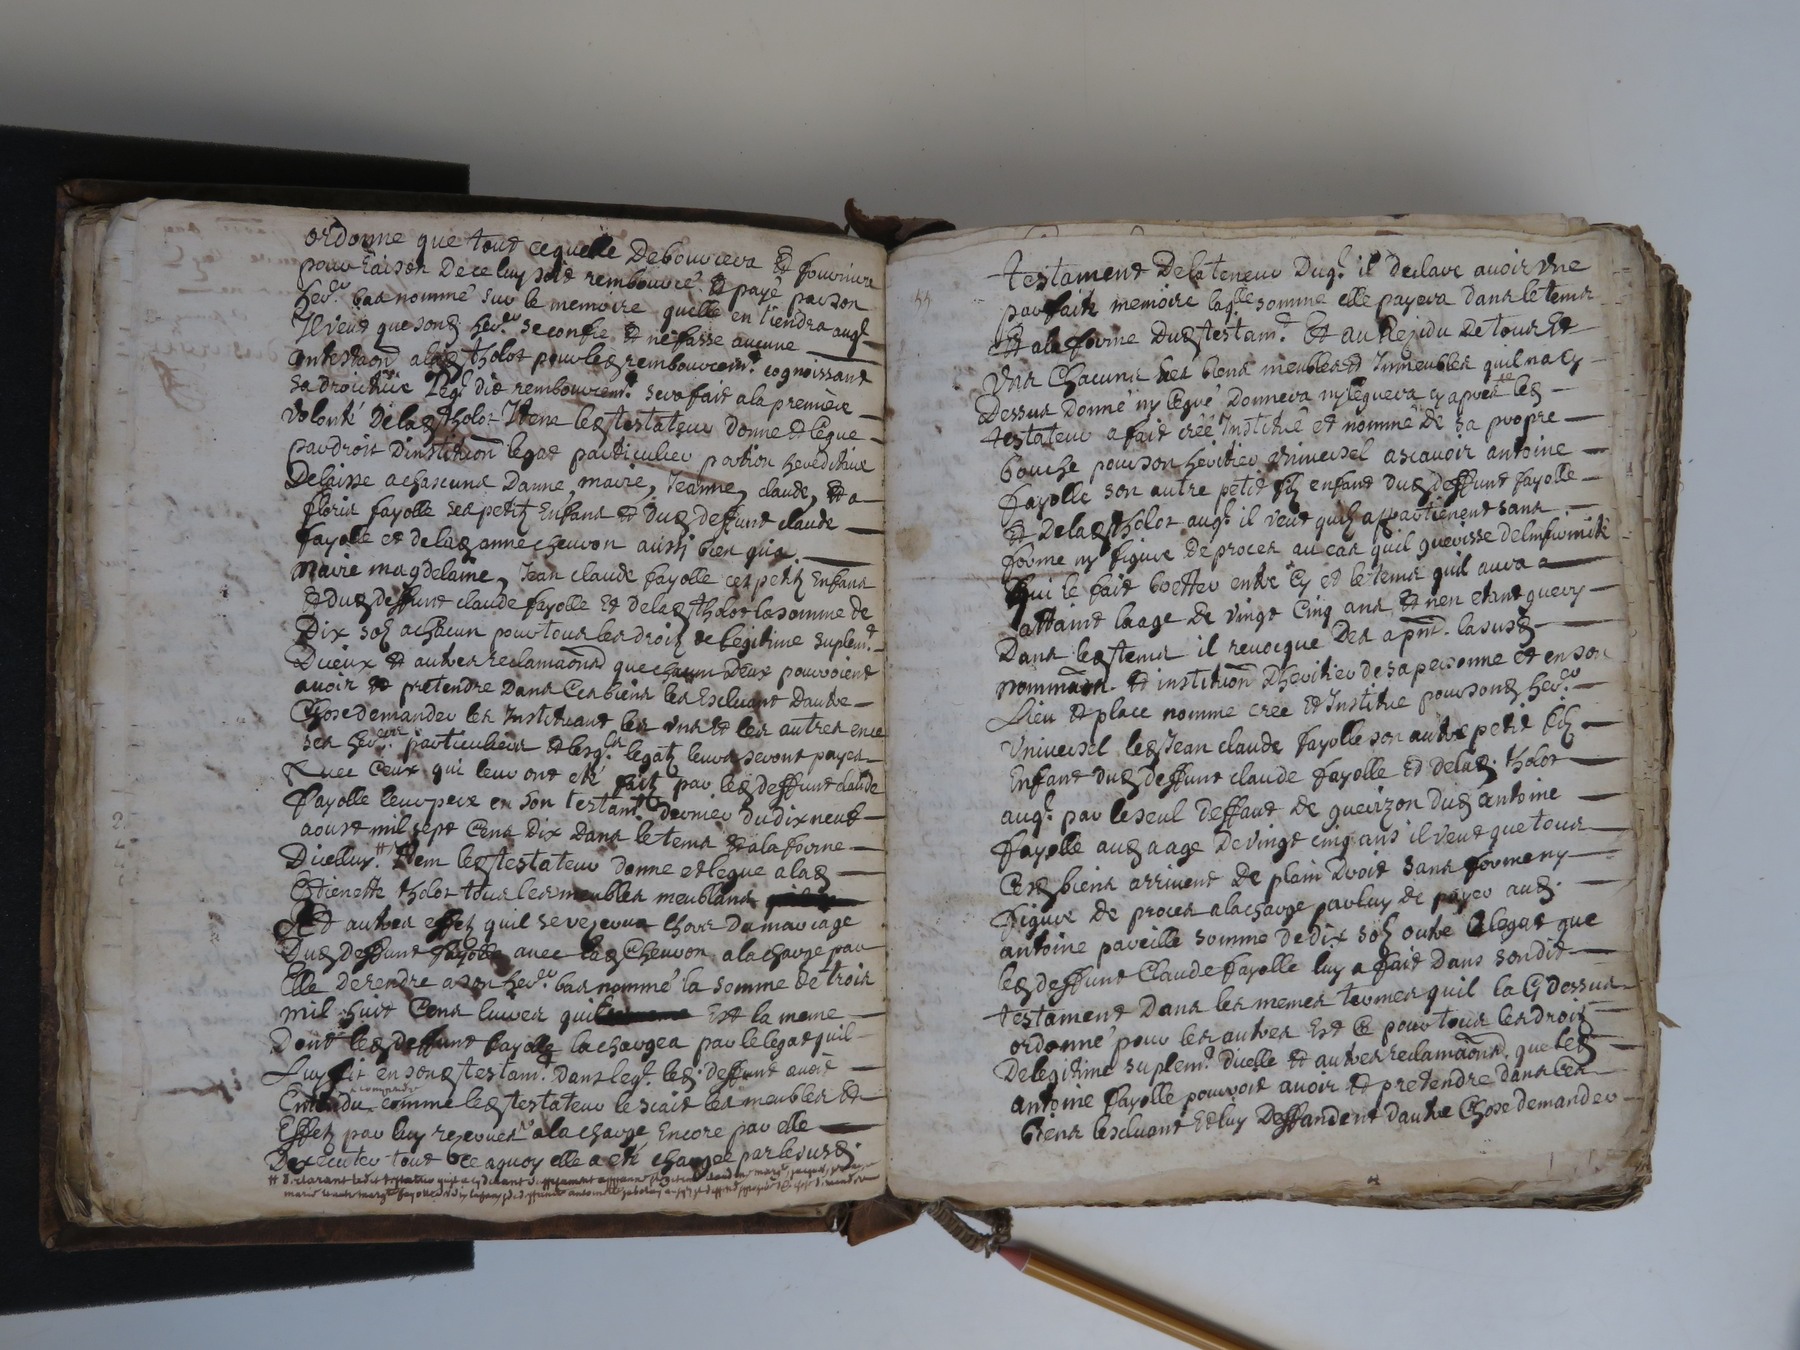 ordonne que tout ce quelle Debourcera Et fournira
pour Raison De ce luy soit rembourcé Et payé par son
her.r bas nommé sur le memoire quelle en tiendra auq.l
Il veut que sond her.r se confie Et ne fasse aucune
ontestaon a lad tholot pour led rembourcem.t cognoissant
sa droiture Leq.l dit rembourcem.t sera fait a la premiere
volonté De lad tholot Item led testateur Donne Et legue
par droit Dinstitution legat particulier portion hereditaire
Delaisse a chascuns Danne, marie, Jeanne, claude, Et a
floris fayolle ses petitz Enfans Et dud deffunt claude
fayolle et de lad anne cheuvon aussj bien qua
marie magdelaine, Jean claude fayolle ces petitz Enfans
Et dud deffunt claude fayolle Et de lad tholot la somme de
Dix solz a chacun pour tous les droitz de legitime suplem.t
Diceux Et autres reclamaons que chacun Deux pourroient
avoir Et pretendre Dans Ces biens les Excluant Dautre
Chose demander les Instituant les uns Et les autres en ce
ses her.ers particuliers Et lesq.ls legatz leurs seront payes
Avec Ceux qui leur ont eté faitz par led deffunt claude
fayolle leur pere en son testam.t dernier du dix neuf
aoust mil sept Cens dix Dans le tems Et a la forme
Dicelluy. # Item led testateur donne et legue a lad
Estienette tholot tous les meubles meublans
Et autres effetz quil se reserva Lhors Du mariage
Dud deffunt fayolle avec lad Cheuvon a la charge par
Elle De rendre a son her.r bas nommé la somme de trois
mil huit Cens livres qui Est la meme
Dont led deffunt fayolle la chargea par le legat quil
Luy fit en sond testam.t Dans leq.l led. deffunt avoit
Entendu comme led testateur le scait les meubles Et
Effetz par luy reservés a la charge Encore par elle
Dexecuter tout Ce a quoy elle a eté chargée par le susd
testament De la teneur Duq.l il declare avoir Une
parfaite memoire laq.lle somme elle payera Dans le tems
Et a la forme Dud testam.t Et au Rezidu De tous Et
Uns Chacuns ses biens meubles Et Immeubles quil na Cy
Dessus Donné ny legué Donnera ny leguera cy apres led
testateur a fait créé Institué et nommé De sa propre
bouche pour son heritier Universel ascavoir antoine
fayolle son autre petit filz enfant dud deffunt fayolle
Et De lad tholot auq.l il veut quilz appartienent sans
forme ny figure de proces au cas quil guerisse de linfirmité
qui le fait boetter entre Cy et le tems quil aura
attaint laage de vingt Cinq ans Et nen etant guery
Dans led tems il revocque Des a pnt. la susd
nommaon. Et institution Dheritier de sa personne et en son
Lieu Et place nomme crée Et Institue pour sond her.er
Universel led Jean claude fayolle son autre petit filz
Enfant dud deffunt claude fayolle Et De lad. tholot
auq.l par le seul deffaut de guerizon dud antoine
fayolle aud aage De vingt cinq ans il veut que tous
Cesd biens arrivent De plain Droit sans forme ny
figure de proces a la charge par luy de payer aud.
antoine pareille somme de dix solz outre le legat que
led deffunt Claude fayolle luy a fait Dans sondit
testament Dans les memes termes quil la Cy dessus
ordonné pour les autres Et Ce pour tous les droitz
De legitime suplem.t Dicelle Et autres reclamaons. que led
antoine fayolle pourroit avoir Et pretendre dans Ces
biens lexcluant Et luy Deffandent dautre Chose demander